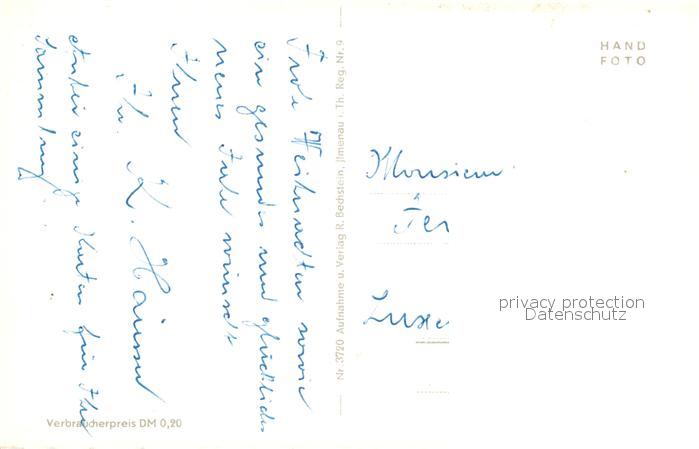 Frohe Weihnachten sowie
ein gesundes und glückliches
neues Jahr wünscht
Ihnen
Ihr K.
Anbei einige Karten für Ihre
Sammlung.
Nr. 3720 Aufnahme u. Verlag R. Bechstein, Ilmenau i. Th. Reg. Nr. 9
HAND
FOTO
Monsieur
Luxe
privacy protection
Datenschutz
Verbraucherpreis DM 0,20